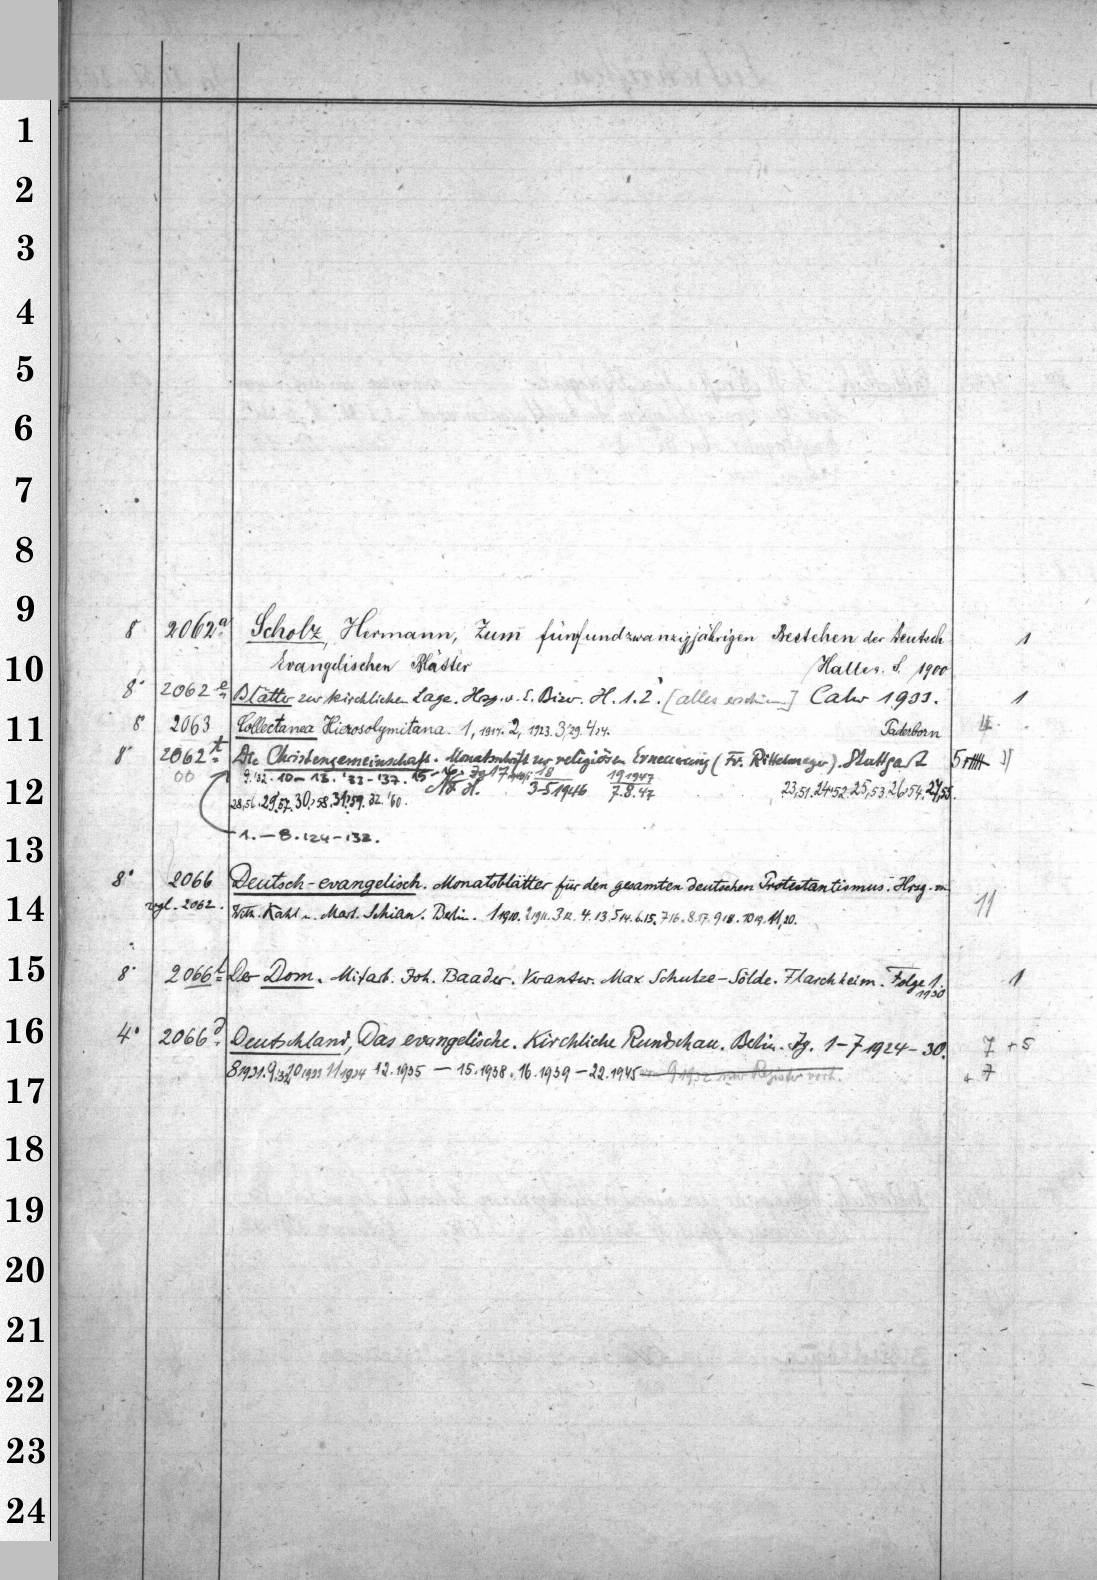 1
2
3
4
5
6
7
8
9
8° 2062 a Scholz, Hermann, Zum fünfundzwanzigjährigen Bestehen der Deutsch- 1
10
Evangelischen Blätter Halle a. S. 1900
8° 2062 e Blätter zur kirchlichen Lage. Hrsg. v. E. Bizer. H. 1. 2. [alles erschien] Calw 1933. 1
11
8° 2063 Collectanea Hierosolymitana. 1, 1917. 2, 1923. 3, 29. 4, 14. Paderborn 4.
8° 2062 t Die Christengemeinschaft. Monatsschrift zur religiösen Erneuerung (Fr. Rittelmeyer). Stuttgart
00 9.'32. 10 – 13. '33 – '37. 18 19 1947
12
3-5 1946 7.8.47 23,51. 24,52. 25,53. 26,54. 27,55.
28,56. 29,57. 30,58. 31,59. 32. '60.
1. – 8. 124 – 132.
13
8° 2066 Deutsch-evangelisch. Monatsblätter für den gesamten deutschen Protestantismus. Hrsg. v.
14
vgl. 2062. Wilh. Kahl u. Mart. Schian. Berlin. 1 1910. 2 1911. 3 12. 4. 13. 5 14. 6. 15. 7 16. 8. 17. 9 18. 10 19. 11, 20. 11
15
8° 2066 t Der Dom. Mitarb. Joh. Baader. Verantw. Max Schulze-Sölde. Flarchheim. Folge 1. 1
1930
16
4° 2066 d Deutschland, Das evangelische. Kirchliche Rundschau. Berlin. Jg. 1–7 1924–30. 7 + 5
17
8 1931. 9, 32 10 1933 11 1934 12. 1935 — 15. 1938. 16. 1939 – 22. 1945 9 1932 nur Register vorh. + 7
18
19
20
21
22
23
24